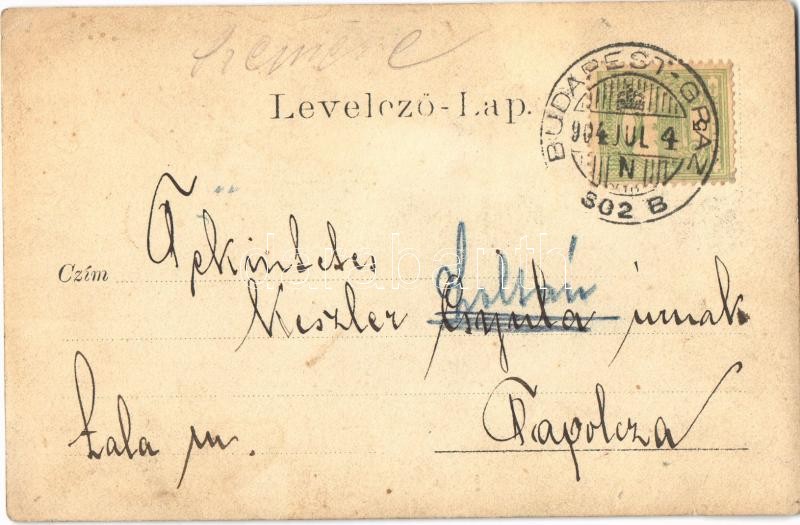 Levelező-Lap.
BUDAPEST-GRAZ
904 JUL 4
N
302 B
Czím
Tekintetes
Keszler Gyula úrnak
Zoltán
Zala m.
Tapolcza